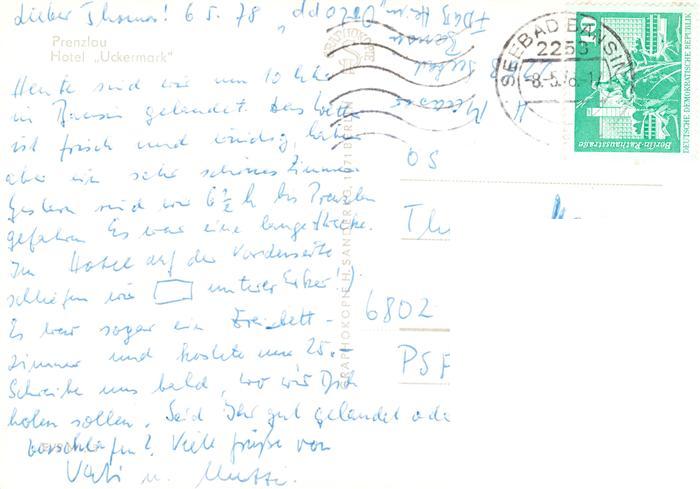 Lieber Thomas! 6.5.78
Prenzlau
Hotel „Uckermark“
Heute sind wir um 10 Uhr
in Bansin gelandet. Das Wetter
ist frisch und windig, haben
aber ein sehr schönes Zimmer
Gestern sind wir 6½ h bis Prenzlau
gefahren Es war eine lange Strecke.
Im Hotel auf der Vorderseite
schliefen wir unterer Erker!)
Es war sogar ein Dreibett-
zimmer und kostete nur 25.-
Schreibe uns bald, wo wir Dich
holen sollen. Seid Ihr gut gelandet oder
verschlafen? Viele Grüße von
Vati u. Mutti.
FDGB Heim
Seebad
SEEBAD BANSIN
2253
-8.-5.78-1
10
Berlin-Rathausstraße
DEUTSCHE DEMOKRATISCHE REPUBLIK
GRAPHOKOPIE H. SANDER KG, 1071 BERLIN
OS
Th
6802
PSF